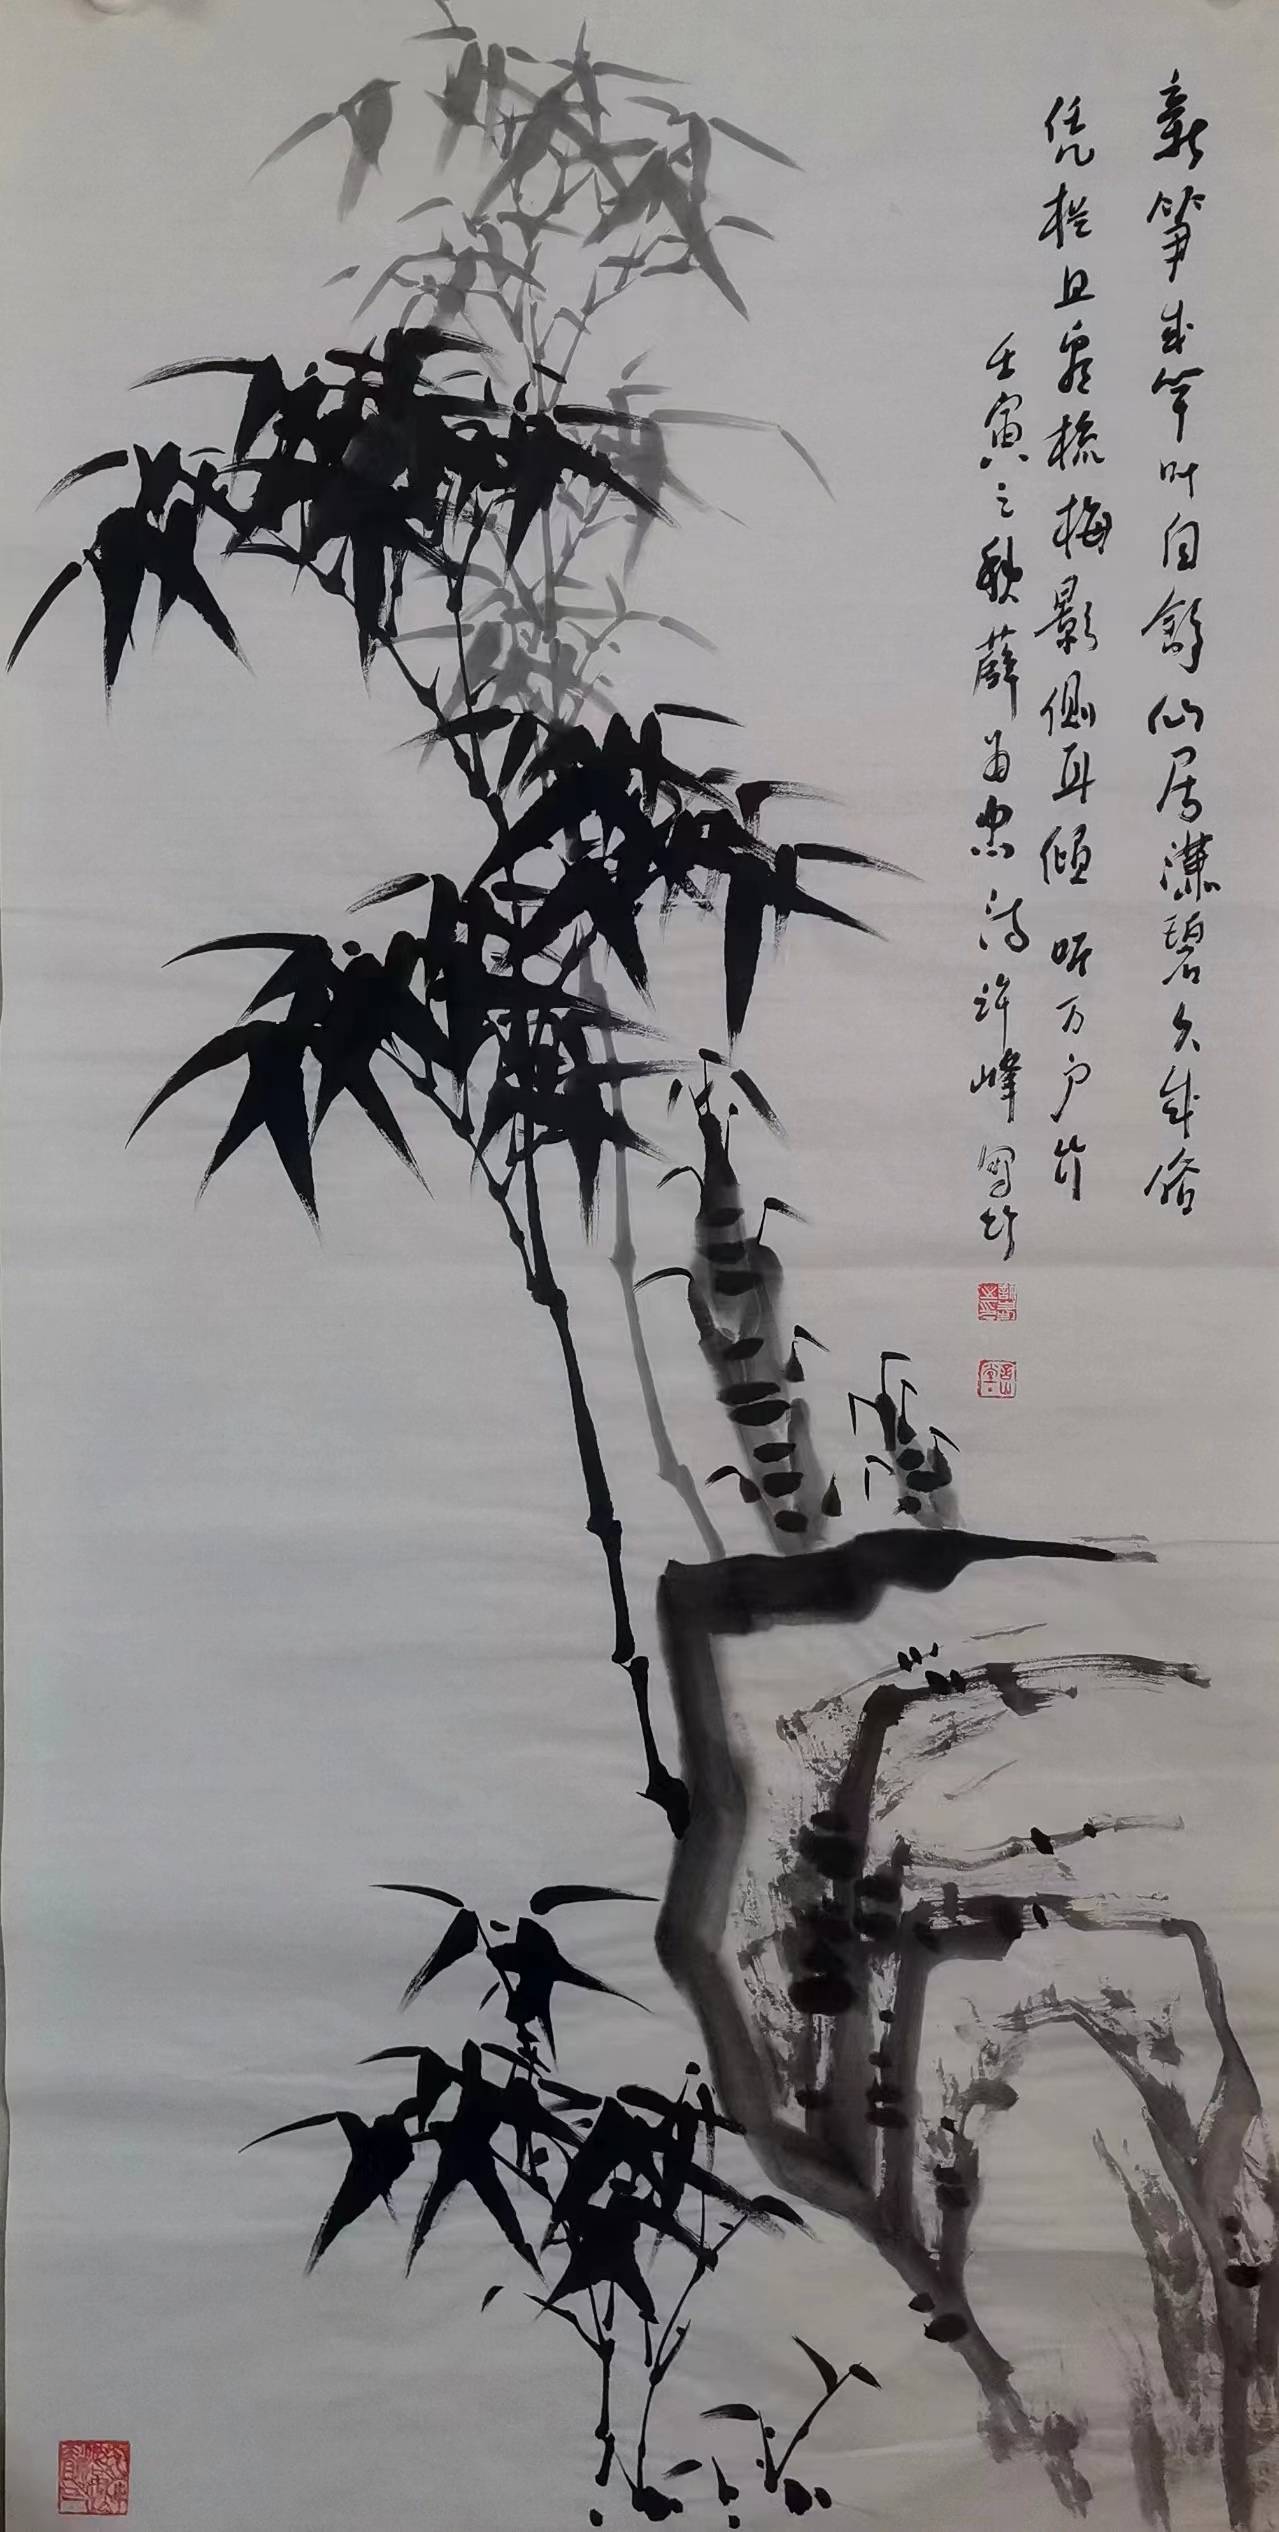 新笋成竿叶自舒仙居潇碧久成俗
凭栏且看梳梅影侧耳倾听万户竹
壬寅之秋薛 忠诗许峰写竹